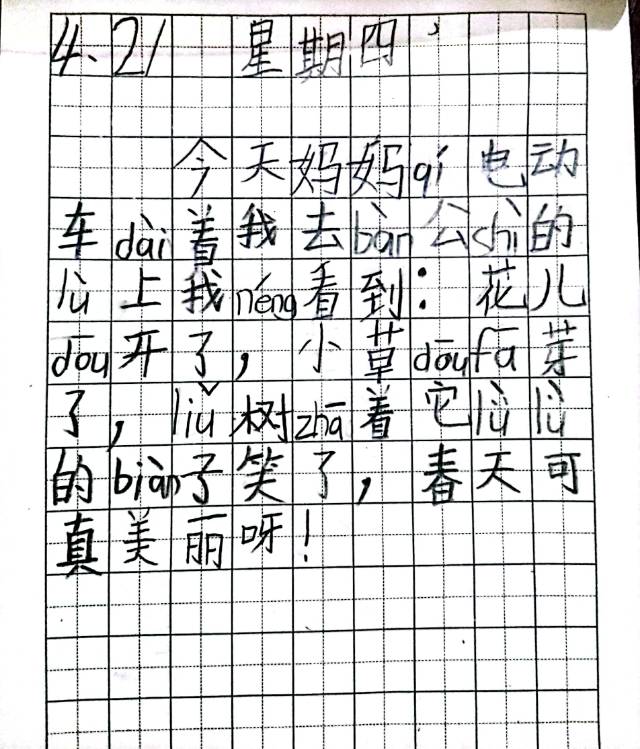 4.21 星期四
今天妈妈qí电动
车dài着我去bàn公shì的
lù上我néng看到：花儿
dōu开了，小草dōufā芽
了，liǔ树zhā着它lǜlǜ
的biàn子笑了，春天可
真美丽呀！